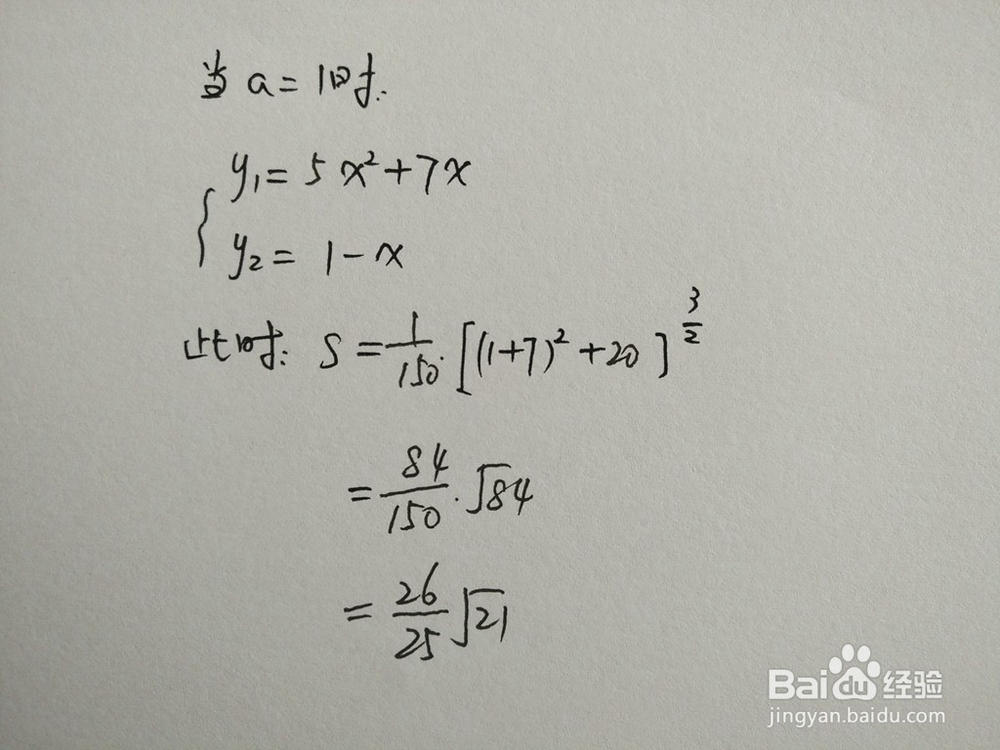 当 a = 1时.
y₁ = 5x² + 7x
y₂ = 1 - x
此时: S = 1/150 · [(1+7)² + 20]^(3/2)
= 84/150 · √84
= 26/25 √21
Baidu 经验
jingyan.baidu.com